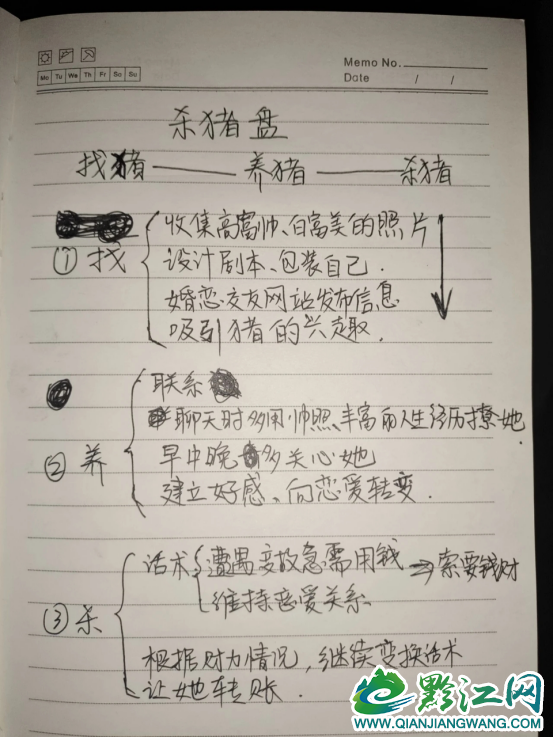 Memo No.
Mo Tu We Th Fr Sa Su
Date / /
杀猪盘
找猪 —— 养猪 —— 杀猪
① 找
收集高富帅、白富美的照片
设计剧本、包装自己.
婚恋交友网站发布信息
吸引猪的兴趣.
② 养
联系
聊天时多用帅照、丰富的人生经历撩她.
早中晚多关心她
建立好感、向恋爱转变.
③ 杀
话术
遭遇变故急需用钱 → 索要钱财
维持恋爱关系
根据财力情况,继续变换话术
让她转账.
黔江网
WWW.QIANJIANGWANG.COM